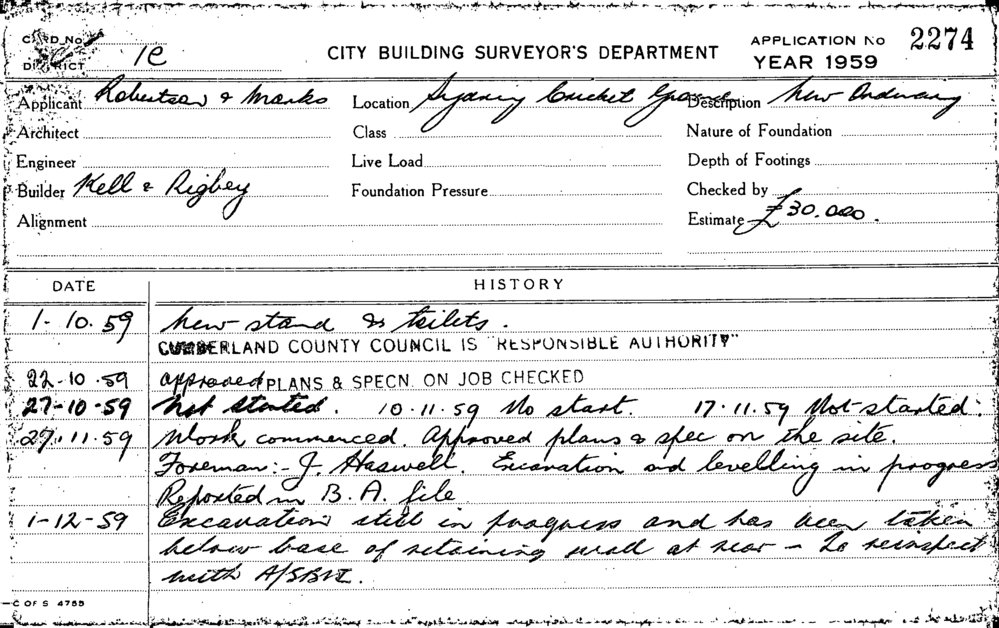 CARD No
DISTRICT 1C
CITY BUILDING SURVEYOR'S DEPARTMENT
APPLICATION No 2274
YEAR 1959
Applicant Robertson & Marks
Location Sydney Cricket Ground
Description New Ordinary
Architect
Class
Nature of Foundation
Engineer
Live Load
Depth of Footings
Builder Kell & Rigbey
Foundation Pressure
Checked by
Alignment
Estimate £30.000.
DATE HISTORY
1-10.59 New stand & toilets.
CUMBERLAND COUNTY COUNCIL IS "RESPONSIBLE AUTHORITY"
22-10.59 approved PLANS & SPECN. ON JOB CHECKED
27-10-59 Not started. 10.11.59 No start. 17.11.59 Not started.
27.11.59 Work commenced. Approved plans & spec on the site.
Foreman:- J. Haswell. Excavation and levelling in progress
Reported in B.A. file
1-12-59 Excavation still in progress and has been taken
below base of retaining wall at rear – to reinspect
with
C OF S 4755